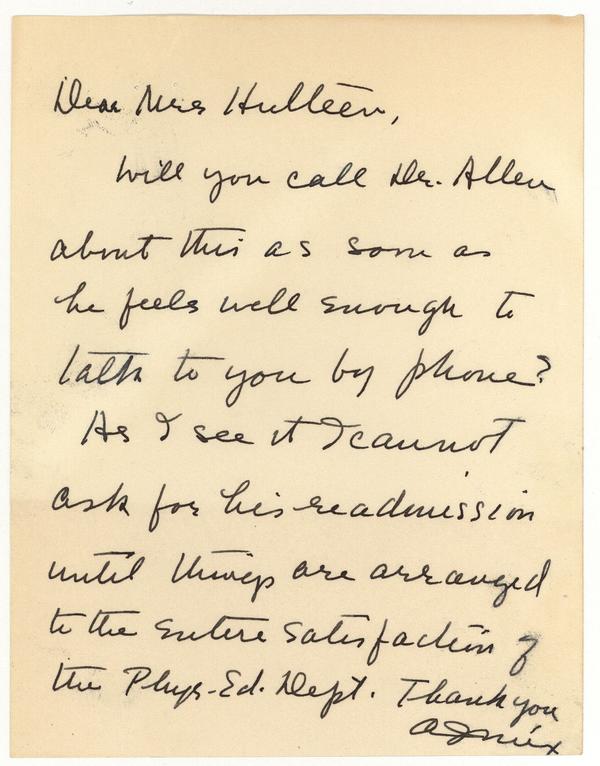 Dear Mrs Hulteen,
Will you call Dr. Allen
about this as soon as
he feels well enough to
talk to you by phone?
As I see it I cannot
ask for his readmission
until things are arranged
to the entire satisfaction of
the Phys-Ed. Dept. Thank you